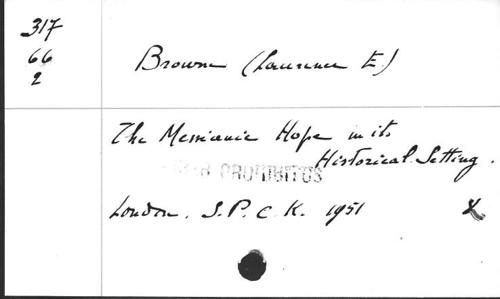 317
66
2
Browne (Laurence E.)
The Messianic Hope in its
Historical Setting.
PROHIBITUS
London. S.P.C.K. 1951